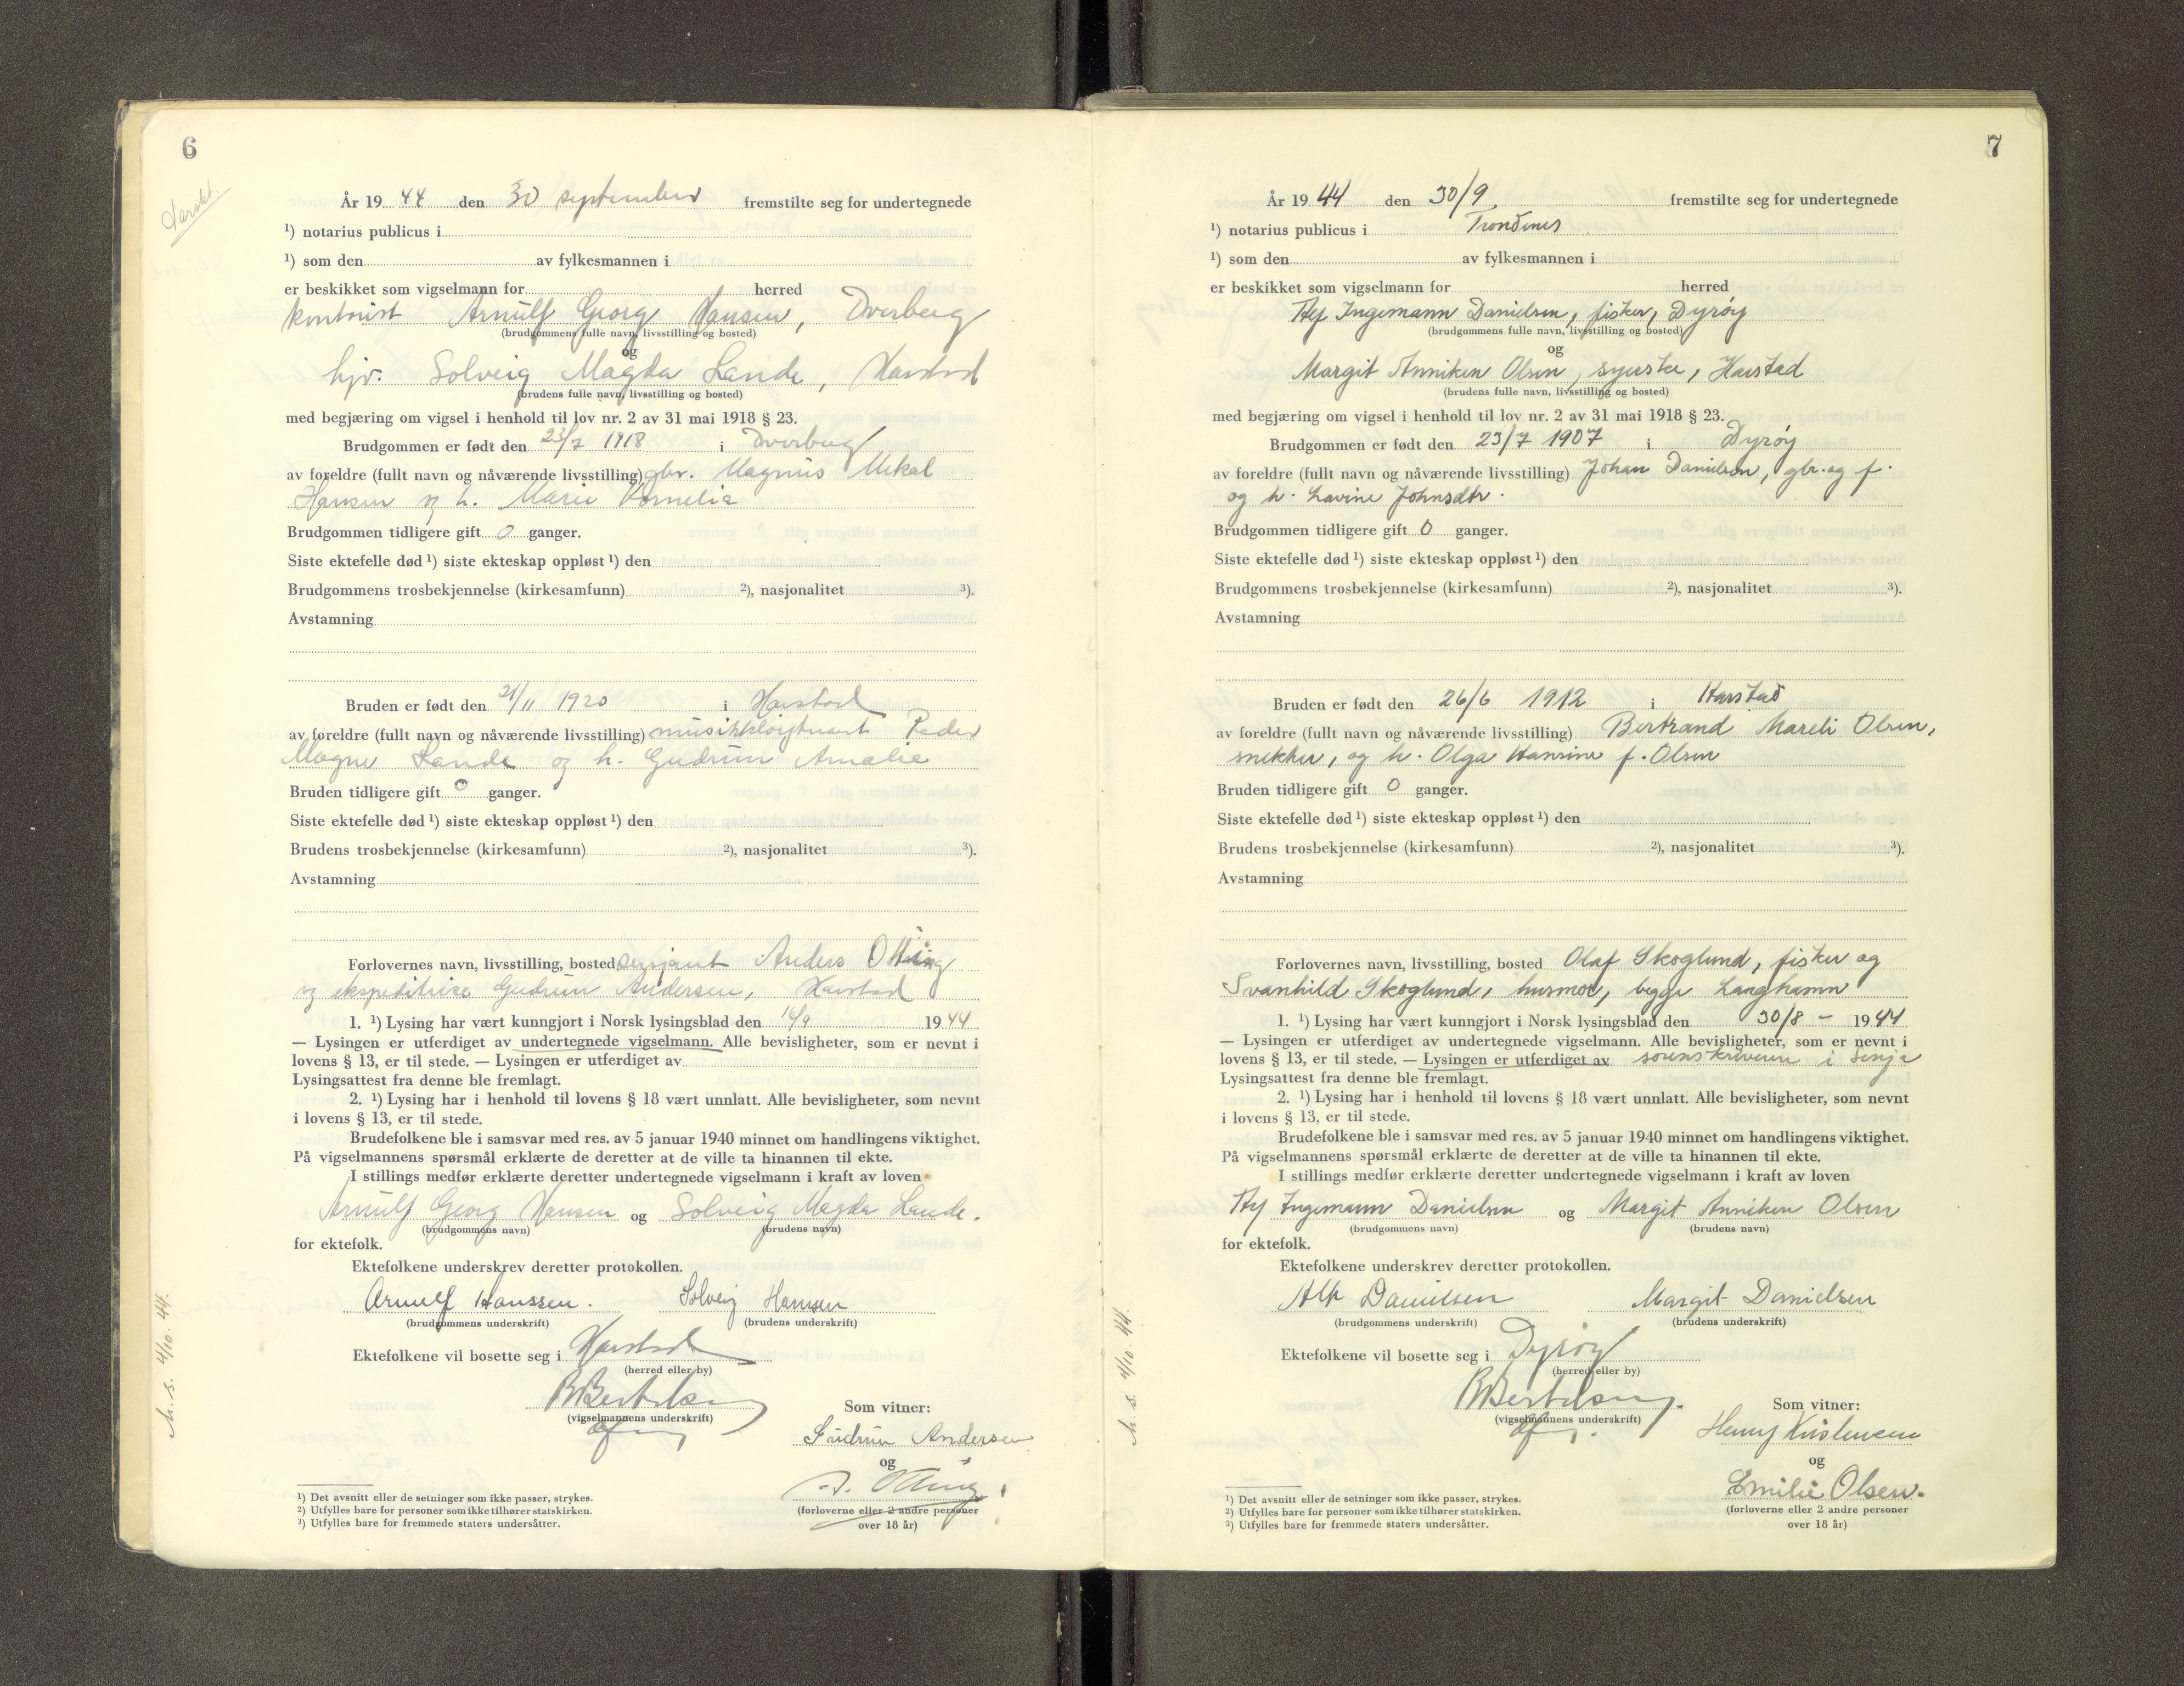 6
Harstd.
År 19 44 den 30 september fremstilte seg for undertegnede
¹) notarius publicus i
¹) som den av fylkesmannen i
er beskikket som vigselmann for herred
kontorist Arnulf Georg Hansen, Dverberg
(brudgommens fulle navn, livsstilling og bosted)
og
hjv. Solveig Magda Lande, Harstad
(brudens fulle navn, livsstilling og bosted)
med begjæring om vigsel i henhold til lov nr. 2 av 31 mai 1918 § 23.
Brudgommen er født den 23/7 1918 i Dverberg
av foreldre (fullt navn og nåværende livsstilling) gbr. Magnus Mikal
Hansen og h. Marie Kornelia
Brudgommen tidligere gift 0 ganger.
Siste ektefelle død ¹) siste ekteskap oppløst ¹) den
Brudgommens trosbekjennelse (kirkesamfunn) ²), nasjonalitet ³).
Avstamning
Bruden er født den 21/11 1920 i Harstad
av foreldre (fullt navn og nåværende livsstilling) musikkløitnant Peder
Magne Lande og h. Gudrun Amalie
Bruden tidligere gift 0 ganger.
Siste ektefelle død ¹) siste ekteskap oppløst ¹) den
Brudens trosbekjennelse (kirkesamfunn) ²), nasjonalitet ³).
Avstamning
Forlovernes navn, livsstilling, bosted sersjant Anders Otting
og ekspeditrise Gudrun Andersen, Harstad
1. ¹) Lysing har vært kunngjort i Norsk lysingsblad den 16/9 19 44
— Lysingen er utferdiget av undertegnede vigselmann. Alle bevisligheter, som er nevnt i
lovens § 13, er til stede. — Lysingen er utferdiget av
Lysingsattest fra denne ble fremlagt.
2. ¹) Lysing har i henhold til lovens § 18 vært unnlatt. Alle bevisligheter, som nevnt
i lovens § 13, er til stede.
Brudefolkene ble i samsvar med res. av 5 januar 1940 minnet om handlingens viktighet.
På vigselmannens spørsmål erklærte de deretter at de ville ta hinannen til ekte.
I stillings medfør erklærte deretter undertegnede vigselmann i kraft av loven
Arnulf Georg Hansen og Solveig Magda Lande.
(brudgommens navn) (brudens navn)
for ektefolk.
Ektefolkene underskrev deretter protokollen.
Arnulf Hanssen. Solveig Hansen
(brudgommens underskrift) (brudens underskrift)
Ektefolkene vil bosette seg i Harstad
(herred eller by)
RBertelsen
(vigselmannens underskrift)
Som vitner:
Gudrun Andersen
og
A. Otting
(forloverne eller 2 andre personer
over 18 år)
¹) Det avsnitt eller de setninger som ikke passer, strykes.
²) Utfylles bare for personer som ikke tilhører statskirken.
³) Utfylles bare for fremmede staters undersåtter.
M. s. 4/10. 44.
7
År 19 44 den 30/9 fremstilte seg for undertegnede
¹) notarius publicus i Trondenes
¹) som den av fylkesmannen i
er beskikket som vigselmann for herred
Alf Ingemann Danielsen, fisker, Dyrøy
(brudgommens fulle navn, livsstilling og bosted)
og
Margit Anniken Olsen, syerske, Harstad
(brudens fulle navn, livsstilling og bosted)
med begjæring om vigsel i henhold til lov nr. 2 av 31 mai 1918 § 23.
Brudgommen er født den 23/7 1907 i Dyrøy
av foreldre (fullt navn og nåværende livsstilling) Johan Danielsen, gbr. og f.
og h. Lavine Johnsdtr.
Brudgommen tidligere gift 0 ganger.
Siste ektefelle død ¹) siste ekteskap oppløst ¹) den
Brudgommens trosbekjennelse (kirkesamfunn) ²), nasjonalitet ³).
Avstamning
Bruden er født den 26/6 1912 i Harstad
av foreldre (fullt navn og nåværende livsstilling) Bertrand Mareli Olsen,
snekker, og h. Olga Hansine f. Olsen
Bruden tidligere gift 0 ganger.
Siste ektefelle død ¹) siste ekteskap oppløst ¹) den
Brudens trosbekjennelse (kirkesamfunn) ²), nasjonalitet ³).
Avstamning
Forlovernes navn, livsstilling, bosted Olaf Skoglund, fisker og
Svanhild Skoglund, husmor, begge Langhamn
1. ¹) Lysing har vært kunngjort i Norsk lysingsblad den 30/8 – 19 44
— Lysingen er utferdiget av undertegnede vigselmann. Alle bevisligheter, som er nevnt i
lovens § 13, er til stede. — Lysingen er utferdiget av sorenskriveren i Senja
Lysingsattest fra denne ble fremlagt.
2. ¹) Lysing har i henhold til lovens § 18 vært unnlatt. Alle bevisligheter, som nevnt
i lovens § 13, er til stede.
Brudefolkene ble i samsvar med res. av 5 januar 1940 minnet om handlingens viktighet.
På vigselmannens spørsmål erklærte de deretter at de ville ta hinannen til ekte.
I stillings medfør erklærte deretter undertegnede vigselmann i kraft av loven
Alf Ingemann Danielsen og Margit Anniken Olsen
(brudgommens navn) (brudens navn)
for ektefolk.
Ektefolkene underskrev deretter protokollen.
Alf Danielsen Margit Danielsen
(brudgommens underskrift) (brudens underskrift)
Ektefolkene vil bosette seg i Dyrøy
(herred eller by)
RBertelsen
(vigselmannens underskrift)
Som vitner:
Henny Kristensen
og
Emilie Olsen.
(forloverne eller 2 andre personer
over 18 år)
¹) Det avsnitt eller de setninger som ikke passer, strykes.
²) Utfylles bare for personer som ikke tilhører statskirken.
³) Utfylles bare for fremmede staters undersåtter.
M. s. 4/10. 44.